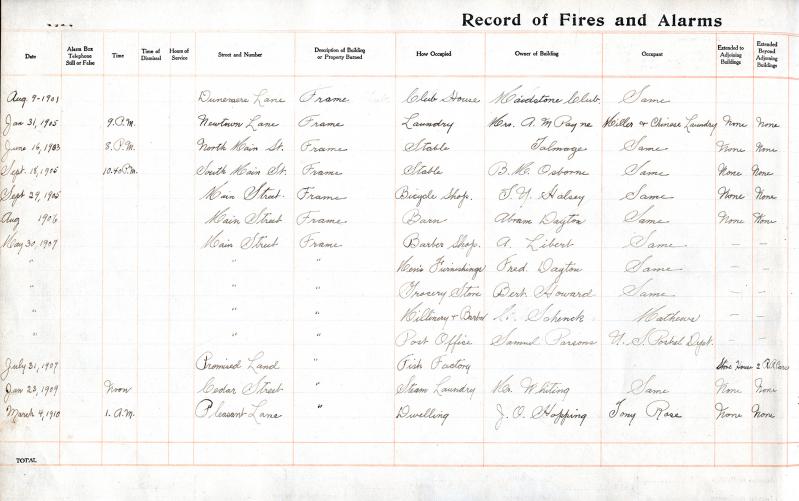 Record of Fires and Alarms
Date Alarm Box Telephone Still or False Time Time of Dismissal Hours of Service Street and Number Description of Building or Property Burned How Occupied Owner of Building Occupant Extended to Adjoining Buildings Extended Beyond Adjoining Buildings
Aug 9-1901 Dunemere Lane Frame Club House Maidstone Club. Same
Jan 31, 1905 9.P.M. Newtown Lane Frame Laundry Mrs. A. M Payne Miller & Chinese Laundry None None
June 16, 1903 8.P.M. North Main St. Frame Stable Talmage Same None None
Sept. 18, 1905 10.40 P.M. South Main St. Frame Stable B. M. Osborne Same None None
Sept 29, 1905 Main Street. Frame Bicycle Shop. Halsey Same None None
Aug 1906 Main Street Frame Barn Abram Dayton Same None None
May 30, 1907 Main Street Frame Barber Shop. A. Libert Same — —
" " " Men's Furnishings Fred. Dayton Same — —
" " " Grocery Store Bert. Howard Same — —
" " " Millinery & Barber Schenck Mathews — —
" " " Post Office Samuel Parsons U. S Postal Dept. — —
July 31, 1907 Promised Land " Fish Factory Store House 2 R.R Cars
Jan 23, 1909 Noon Cedar Street " Steam Laundry Whiting Same None None
March 4, 1910 1. A.M. Pleasant Lane " Dwelling J. O. Hopping Tony Rose None None
TOTAL